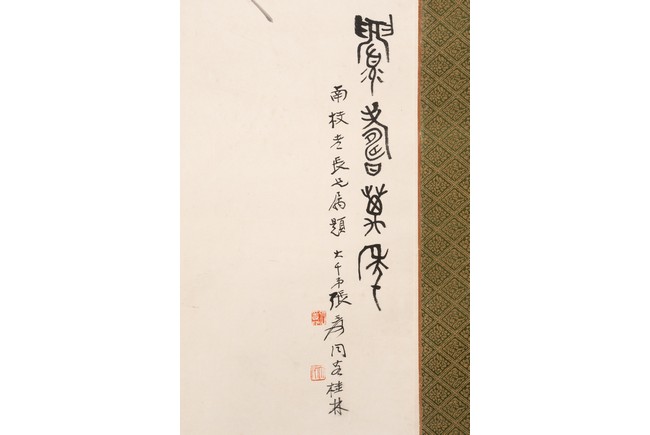 眉壽萬年
南枝老長兄屬題 大千弟張爰同客桂林